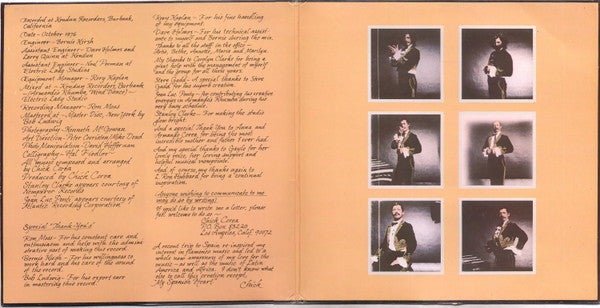 Recorded at Kendun Recorders, Burbank,
California
Date - October 1976
Engineer - Bernie Kirsh
Assistant Engineer - Dave Holmes and
Larry Quinn at Kendun
Assistant Engineer - Neal Perman at
Electric Lady Studios
Equipment Manager - Rory Kaplan
Mixed at - Kendun Recorders, Burbank
(Armando's Rhumba, Wind Dance) -
Electric Lady Studio
Recording Manager - Ron Moss
Mastered at - Master Disc, New York by
Bob Ludwig
Photography - Kenneth McGowan
Art Direction - Peter Corriston/Mike Doud
Photo Manipulation - David Heffernan
Calligraphy - Hal Fiedler
All music composed and arranged
by Chick Corea
Produced by Chick Corea
Stanley Clarke appears courtesy of
Nemperor Records
Jean Luc Ponty appears courtesy of
Atlantic Recording Corporation
Special "Thank-You's"
Ron Moss - For his constant care and
enthusiasm and help with the admini-
strative part of making this record.
Bernie Kirsh - For his willingness to
work hard and his care of the sound
of the record.
Bob Ludwig - For his expert care
in mastering this record.
Rory Kaplan - For his fine handling
of my equipment.
Dave Holmes - For his technical assist-
ance to myself and Bernie during the mix.
Thanks to all the staff in the office -
Moss, Bette, Annette, Maria and Marilyn.
My thanks to Carolyn Clarke for being a
great help with the management of myself
and the group for all these years.
Steve Gadd - A special thanks to Steve
Gadd for his superb creation.
Jean Luc Ponty - For contributing his creative
energies in Armando's Rhumba during his
very busy schedule.
Stanley Clarke - For making the studio
glow bright.
And a special Thank You to Anna and
Armando Corea, for being the most
incredible mother and father I ever had.
And my special thanks to Gayle for her
lovely gifts, her loving support and
helpful musical viewpoints.
And of course, my thanks again to
L. Ron Hubbard for being a continual
inspiration.
Anyone wishing to communicate to me
may do so by writing!
If you'd like to write me a letter, please
feel welcome to do so -
Chick Corea
P.O. Box
Los Angeles, Calif. 90072
A recent trip to Spain re-inspired my
interest in flamenco music and led to a
whole new awareness of my love for the
music - as well as the music of Latin
America and Africa. I don't know what
else to call this creation except,
"My Spanish Heart"
Chick